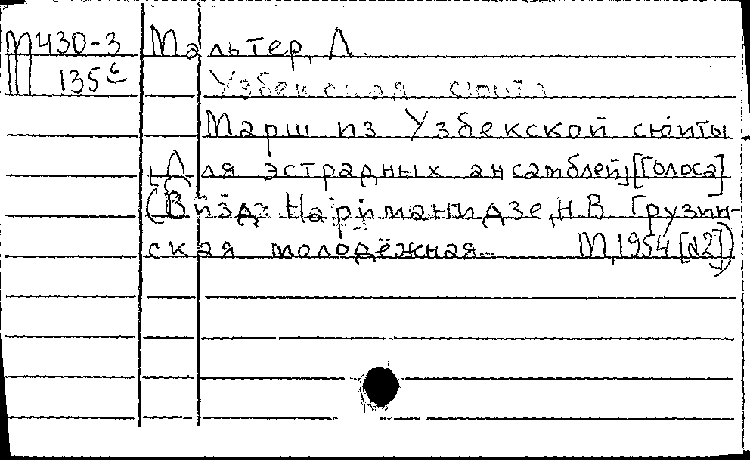 М430-3 Мальтер, Л.
135 Узбекская сюита
Марш из Узбекской сюиты
[Для эстрадных ансамблей] [Голоса]
(В изд: Нариманидзе, Н.В. Грузин-
ская молодёжная. М, 1954 [22])